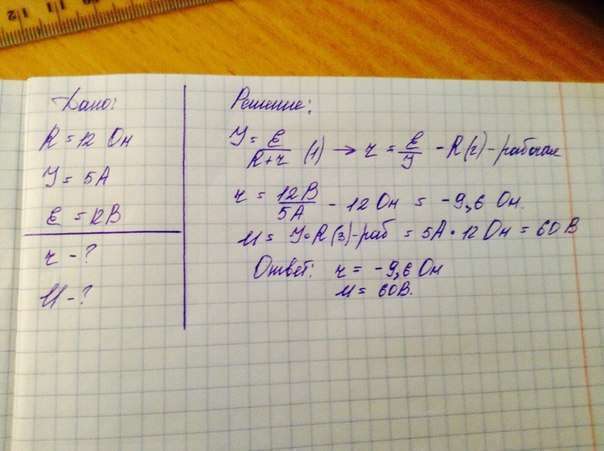 Дано:
R = 12 Ом
I = 5А
ε = 12В
r - ?
U - ?
Решение:
I = ε/(R+r) (1) → r = ε/I - R (2) - рабочая
r = 12В/5А - 12 Ом = -9,6 Ом.
U = I • R (3) - раб = 5А • 12 Ом = 60 В
Ответ: r = -9,6 Ом
U = 60В.